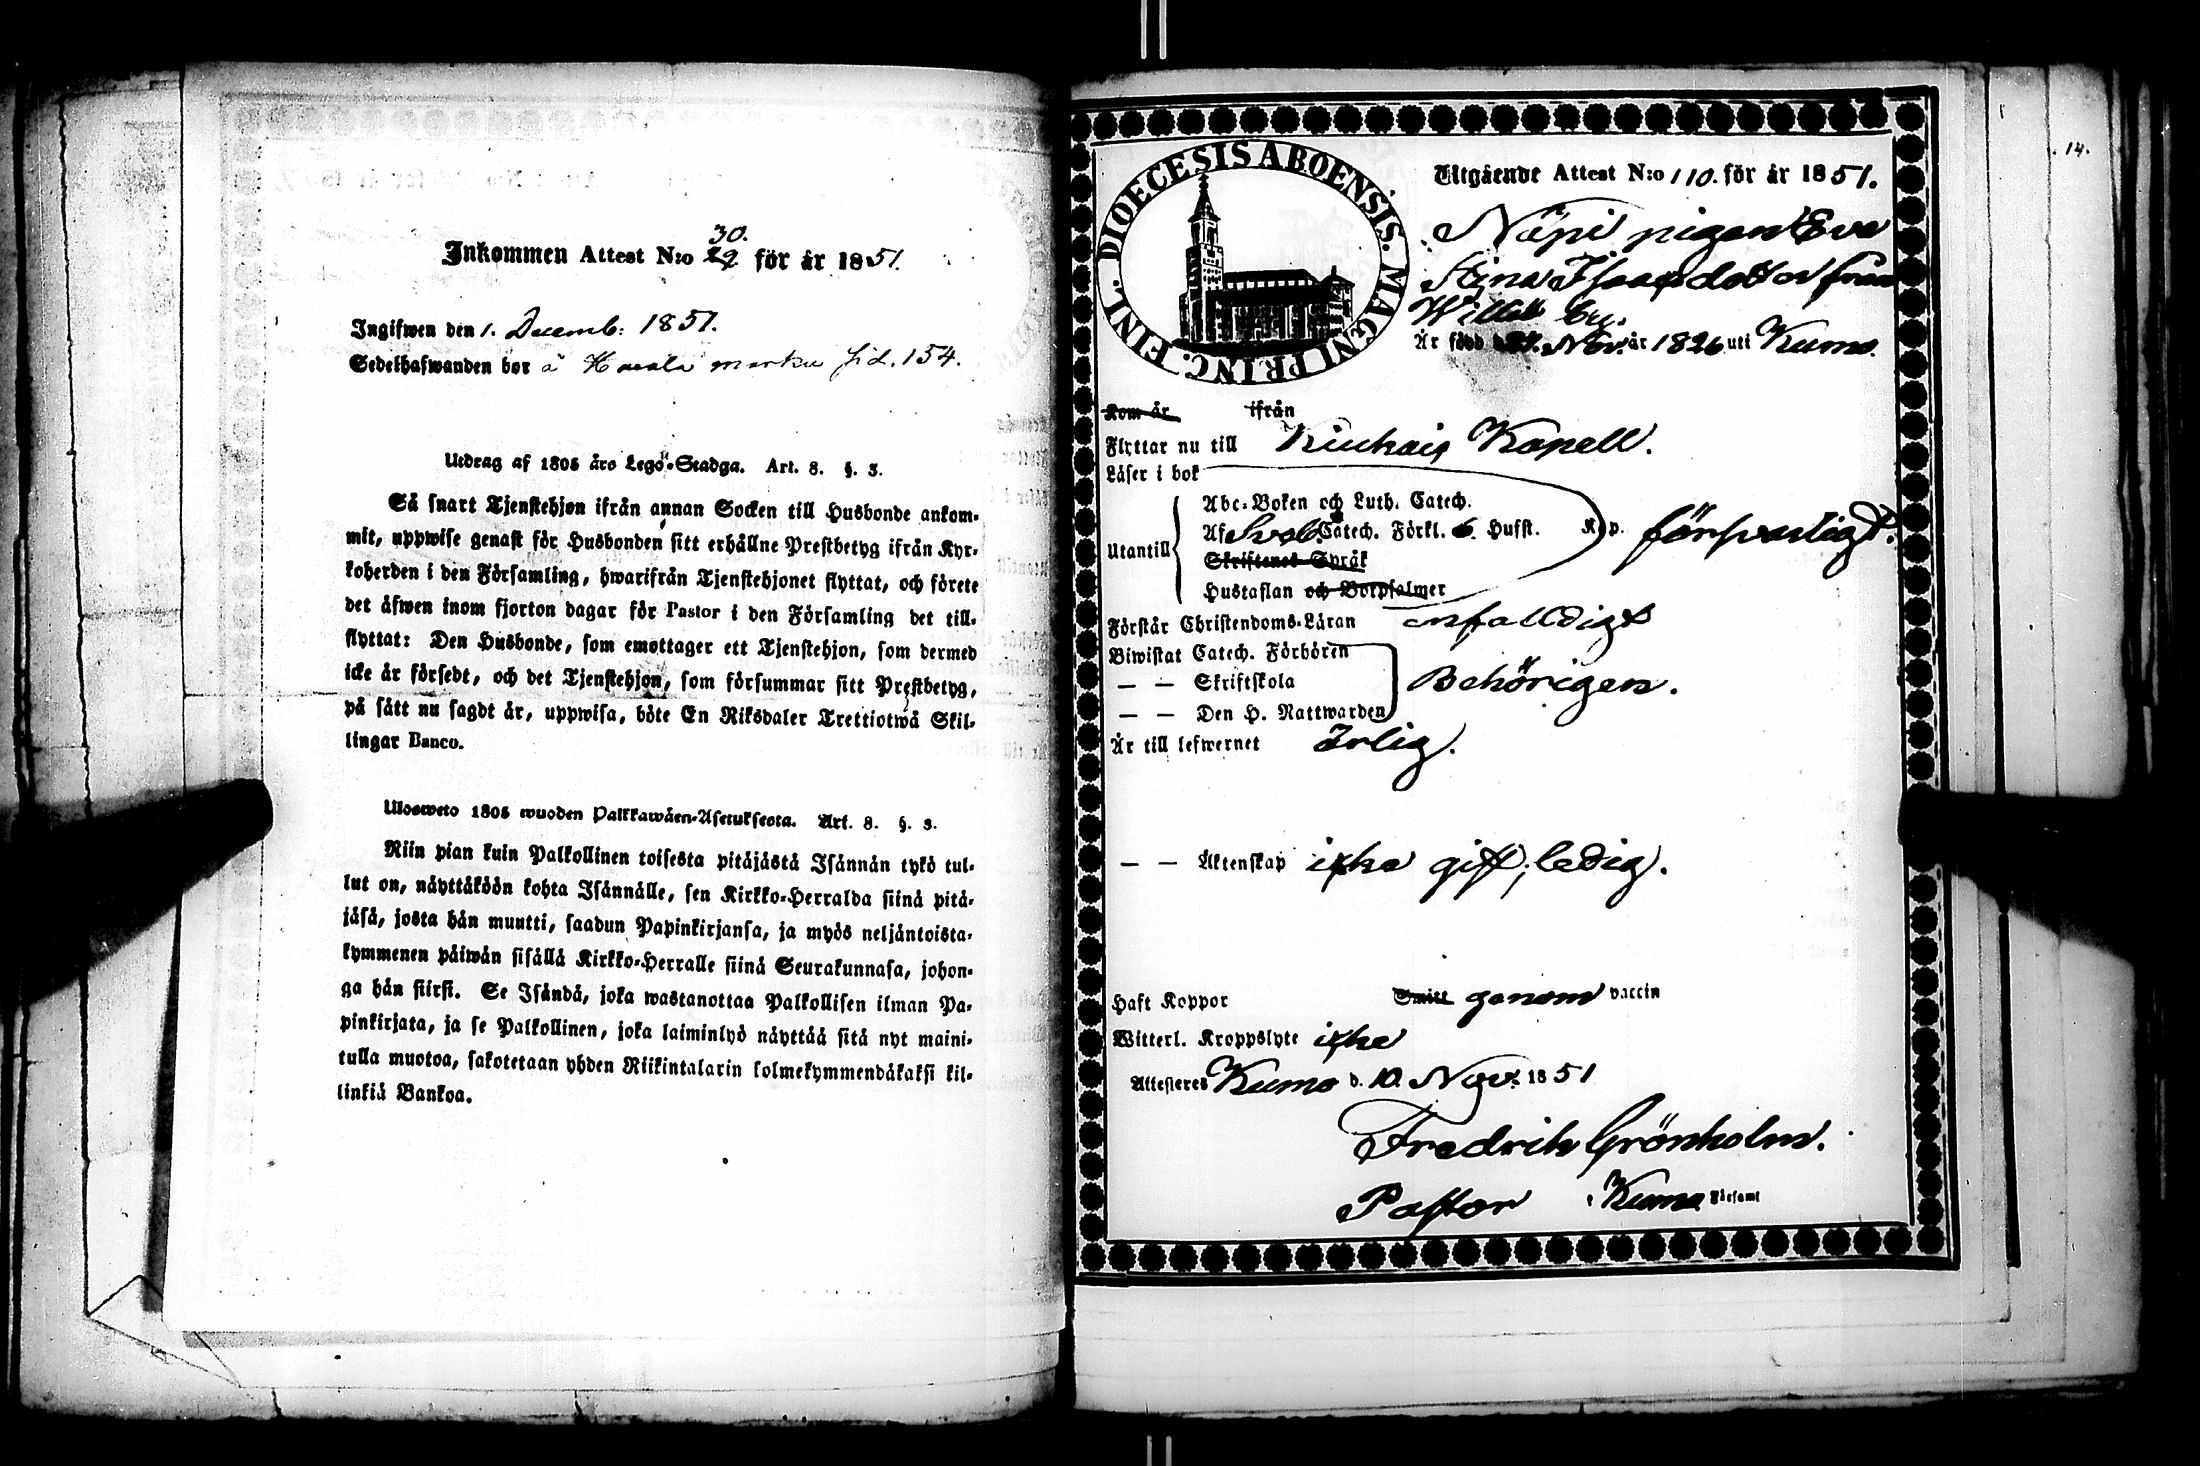 Inkommen Attest N:o 29. 30. för år 1851.
Ingifwen den 1. Decemb: 1851.
Sedelhafwanden bor å marku sid. 154.
Utdrag af 1805 års Lego-Stadga. Art. 8. §. 3.
Så snart Tjenstehjon ifrån annan Socken till Husbonde ankom-
mit, uppwise genast för Husbonden sitt erhållne Prestbetyg ifrån Kyr-
koherden i den Församling, hwarifrån Tjenstehjonet flyttat, och förete
det äfwen inom fjorton dagar för Pastor i den Församling det till-
flyttat: Den Husbonde, som emottager ett Tjenstehjon, som dermed
icke är försedt, och det Tjenstehjon, som försummar sitt Prestbetyg,
på sätt nu sagdt är, uppwisa, böte En Riksdaler Trettiotwå Skil-
lingar Banco.
Ulosweto 1805 wuoden Palkkawäen-Asetuksesta. Art. 8. §. 3.
Niin pian kuin Palkollinen toisesta pitäjästä Isännän tykö tul-
lut on, näyttäköön kohta Isännälle, sen Kirkko-Herralda siinä pitä-
jäsä, josta hän muutti, saadun Papinkirjansa, ja myös neljäntoista-
kymmenen päiwän sisällä Kirkko-Herralle siinä Seurakunnasa, johon-
ga hän siirsi. Se Isändä, joka wastanottaa Palkollisen ilman Pa-
pinkirjata, ja se Palkollinen, joka laiminlyö näyttää sitä nyt maini-
tulla muotoa, sakotetaan yhden Riikintalarin kolmekymmendäkaksi kil-
linkiä Bankoa.
14.
DIOECESIS ABOENSIS. MAGNI PRINC. FINL.
Utgående Attest N:o 110. för år 1851.
Näpi pigan Eva
Stina Isaacsdotter från
by.
Är född d. Nov. år 1826 uti Kumo.
Kom år ifrån
Flyttar nu till Kiukais Kapell.
Läser i bok
Utantill
Abc-Boken och Luth. Catech.
Af Sveb. Catech. Förkl. 6. Hufst. Kap. försvarligt.
Skriftenes Språk
Hustaflan och Botpsalmer
Förstår Christendoms-Läran enfalldigt
Biwistat Catech. Förhören
— — Skriftskola Behörigen.
— — Den H. Nattwarden
Är till lefwernet Ärlig.
— — Äktenskap icke gift, ledig.
Haft Koppor Smitt genom vaccin
Witterl. Kroppslyte icke
Attesteres Kumo d. 10. Nov. 1851
Fredrik Grönholm.
Pastor i Kumo Församl